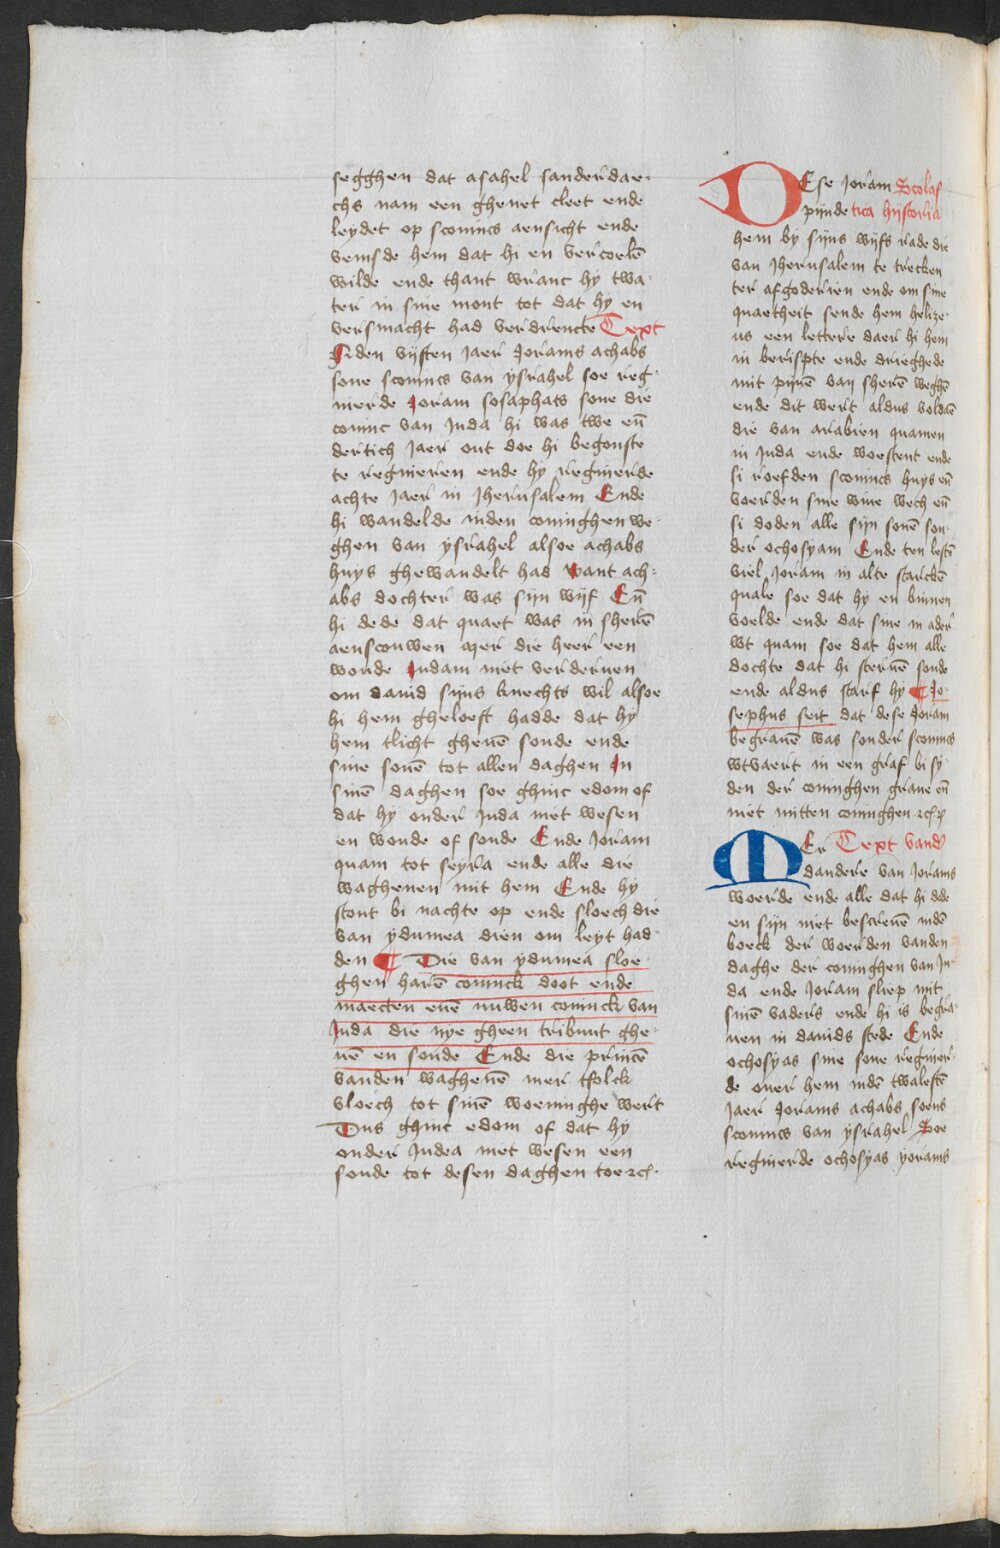 segghen dat asahel sanderdae-
chs nam een ghenet cleet ende
leydet op sconincs aensicht ende
veinsde hem dat hi en vercoelē
wilde ende thant wranc hy twa-
ter in sine mont tot dat hy en
versmacht had verdrencte Text
Inden vijften jaer Jorams achabs
sone sconincs van ysrahel soe reg-
nierde Joram Josaphats sone die
coninc van Juda hi was twe eñ
dertich jaer out doe hi begonste
te regnieren ende hy regnierde
achte jaer in Jherusalem Ende
hi wandelde inden coninghen we-
ghen van ysrahel alsoe achabs
huys ghewandelt had want ach-
abs dochter was sijn wijf Eñ
hi dede dat quaet was in sherē
aenscouwen mer die heer een
woude Judam niet verderuen
om dauid sijns knechts wil alsoe
hi hem gheloeft hadde dat hy
hem tlicht gheuē soude ende
sine sonē tot allen daghen In
sinē daghen soe ghinc edom of
dat hy onder Juda niet wesen
en woude of soude Ende Joram
quam tot seyra ende alle die
waghenen mit hem Ende hy
stont bi nachte op ende sloech die
van ydumea dien om leyt had-
den ¶ Die van ydumea sloe-
ghen harē coninck doot ende
maecten enē nuwen coninck van
Juda die nye gheen tribuut ghe-
uē en soude Ende die princē
vanden waghenē mer tfolck
vloech tot sinē woeninghe wert
Dus ghinc edom of dat hy
onder Judea niet wesen een
soude tot desen daghen toe rc̄.
DEse Joram Scolas
pijnde tica hystoria
hem by sijns wijfs rade die
van Jherusalem te trecken
ter afgoderien ende om sine
quaetheit sende hem helize-
us een lettere daer hi hem
in berispte ende drieghede
mit pijnē van sherē weghē
ende dit wert aldus voldaē
die van arabien quamen
in Juda ende woestent ende
si roefden sconincs huys eñ
voerden sine wiue wech eñ
si doden alle sijn sonē son-
der ochosyam Ende ten lestē
viel Joram in alte starckē
quale soe dat hy en binnen
voelde ende dat sine in ader
wt quam soe dat hem alle
dochte dat hi steruē soude
ende aldus starf hy ¶ Jo-
sephus seit dat dese Joram
begrauē was sonder sconincs
wtvaert in een graf bi sy-
den der coninghen graue eñ
niet mitten coninghen rc̄
MEr Text vand
dandere van Jorams
woerde ende alle dat hi dede
en sijn niet bescreuē indē
boeck der woerden vanden
daghe der coninghen van Ju-
da ende Joram sliep mit
sinē vaders ende hi is begra-
uen in dauids stede Ende
ochosyas sine sone regnier-
de ouer hem indē twalefstē
Jaer Jorams achabs soens
sconincs van ysrahel Soe
regnierde ochosyas yorams